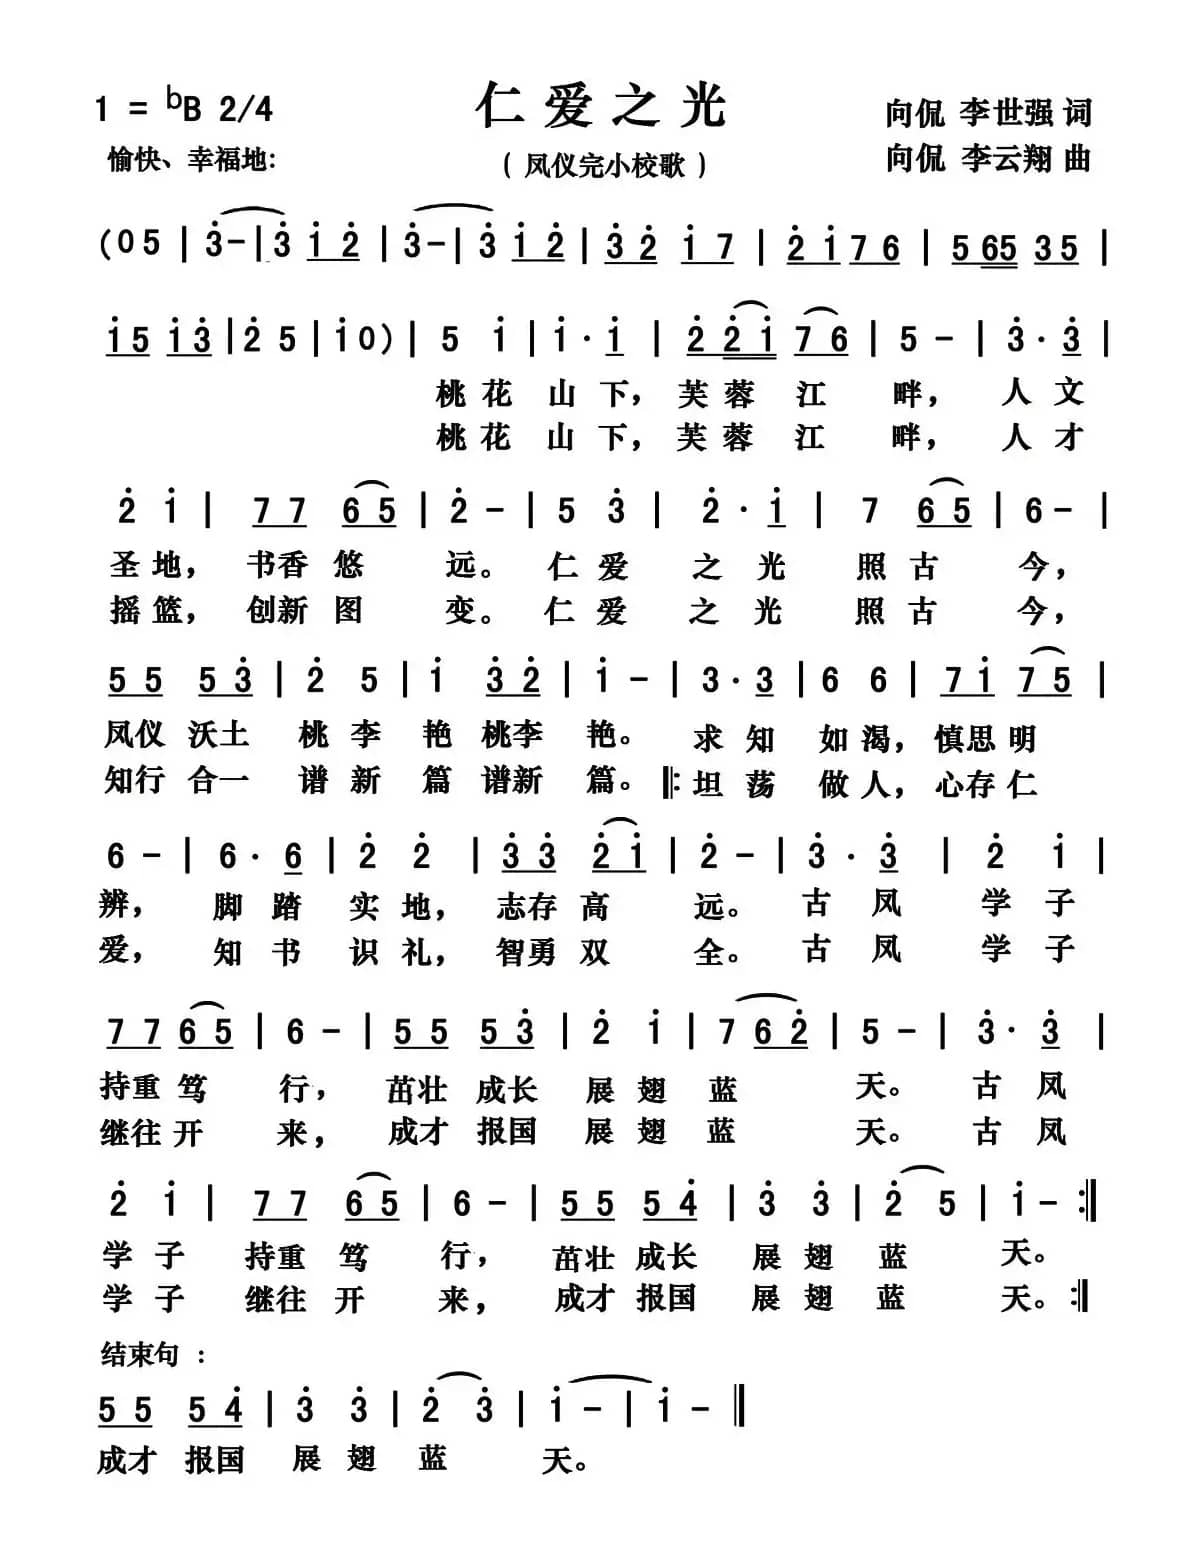 1 = ♭B 2/4 仁爱之光 向侃 李世强 词
愉快、幸福地: ( 凤仪完小校歌 ) 向侃 李云翔 曲
(0 5 | 3̇ - | 3̇ 1̇ 2̇ | 3̇ - | 3̇ 1̇ 2̇ | 3̇ 2̇ 1̇ 7 | 2̇ 1̇ 7 6 | 5 6 5 3 5 |
1̇ 5 1̇ 3̇ | 2̇ 5 | 1̇ 0 ) | 5 1̇ | 1̇ · 1̇ | 2̇ 2̇ 1̇ 7 6 | 5 - | 3̇ · 3̇ |
桃花 山下，芙蓉 江 畔，人文
桃花 山下，芙蓉 江 畔，人才
2̇ 1̇ | 7 7 6 5 | 2̇ - | 5 3̇ | 2̇ · 1̇ | 7 6 5 | 6 - |
圣地，书香悠 远。仁爱 之光 照古 今，
摇篮，创新图 变。仁爱 之光 照古 今，
5 5 5 3̇ | 2̇ 5 | 1̇ 3̇ 2̇ | 1̇ - | 3 · 3 | 6 6 | 7 1̇ 7 5 |
凤仪沃土 桃李 艳桃李 艳。 求知 如渴，慎思明
知行合一 谱新 篇谱新 篇。‖: 坦荡 做人，心存仁
6 - | 6 · 6 | 2̇ 2̇ | 3̇ 3̇ 2̇ 1̇ | 2̇ - | 3̇ · 3̇ | 2̇ 1̇ |
辨，脚踏 实地，志存高 远。古凤 学子
爱，知书 识礼，智勇双 全。古凤 学子
7 7 6 5 | 6 - | 5 5 5 3̇ | 2̇ 1̇ | 7 6 2̇ | 5 - | 3̇ · 3̇ |
持重笃 行，茁壮成长 展翅蓝 天。古凤
继往开 来，成才报国 展翅蓝 天。古凤
2̇ 1̇ | 7 7 6 5 | 6 - | 5 5 5 4̇ | 3̇ 3̇ | 2̇ 5 | 1̇ - :‖
学子 持重笃 行，茁壮成长 展翅 蓝 天。
学子 继往开 来，成才报国 展翅 蓝 天。:‖
结束句：
5 5 5 4̇ | 3̇ 3̇ | 2̇ 3̇ | 1̇ - | 1̇ - ‖
成才 报国 展翅 蓝 天。